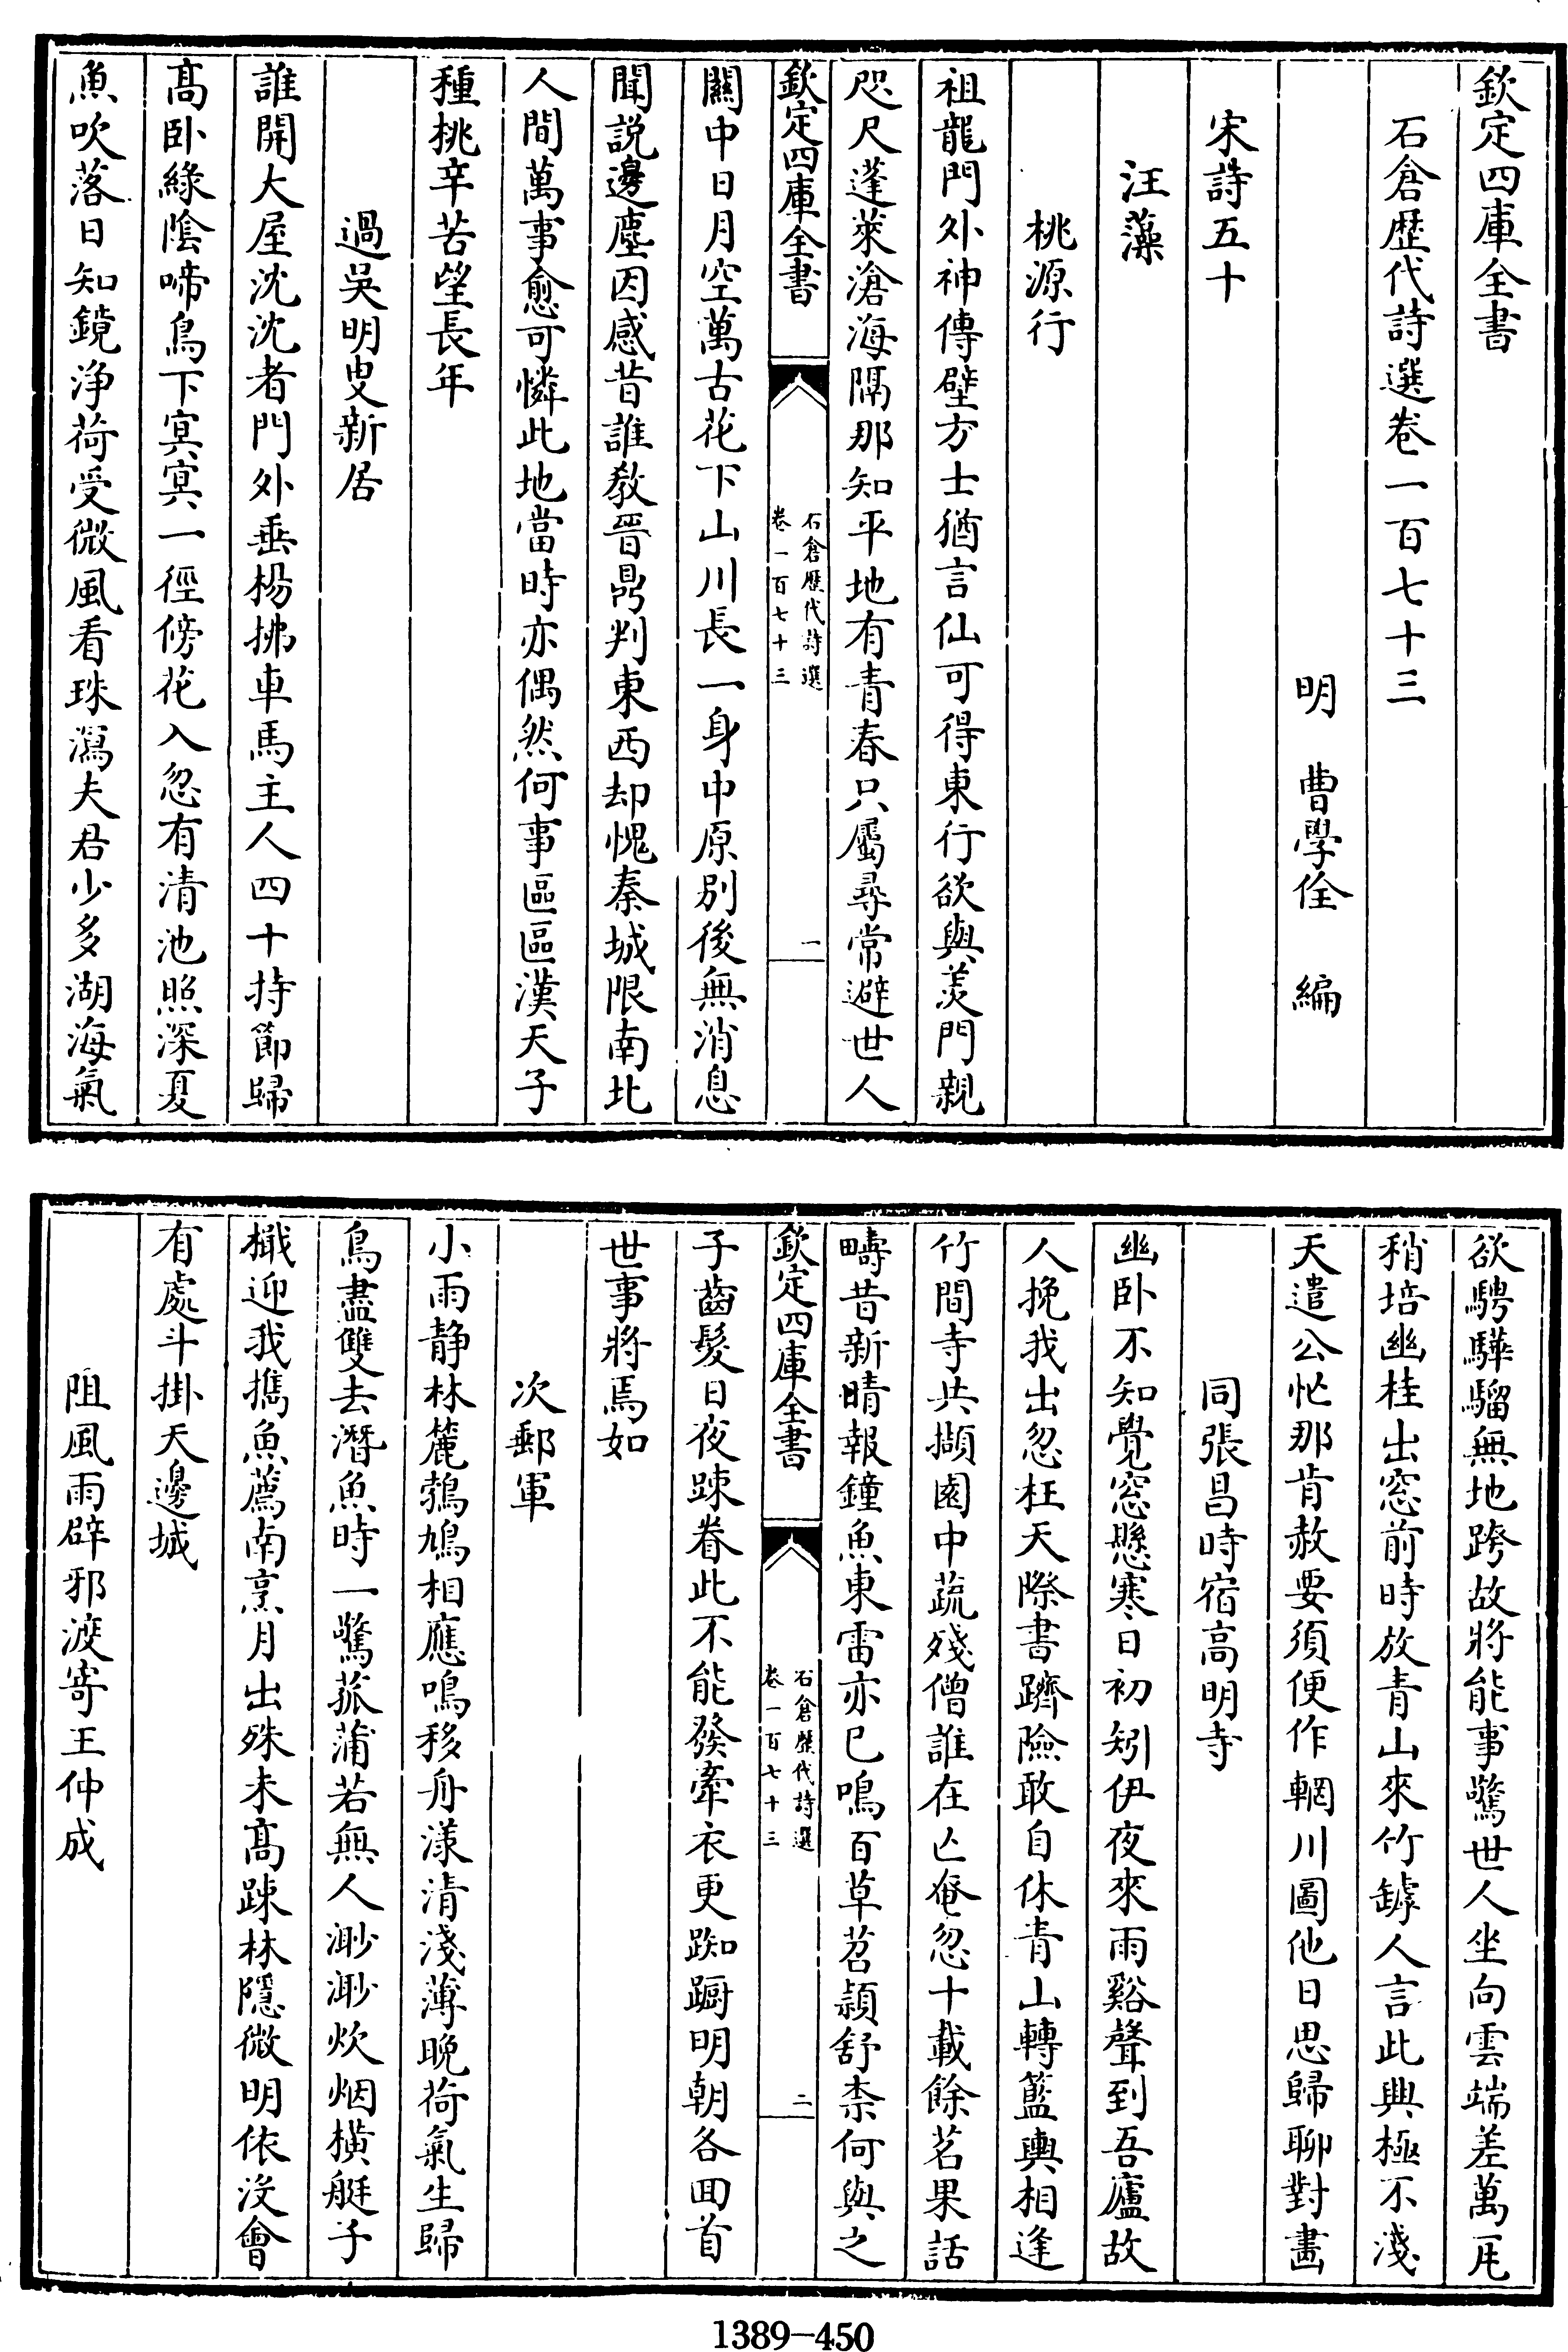 欽定四庫全書
石倉歷代詩選卷一百七十三
明　曹學佺　編
宋詩五十
汪藻
桃源行
祖龍門外神傳璧方士猶言仙可得東行欲與羨門親
咫尺蓬萊滄海隔那知平地有青春只屬尋常避世人
欽定四庫全書
石倉歷代詩選
卷一百七十三
一
關中日月空萬古花下山川長一身中原別後無消息
聞說邊塵因感昔誰教晉鼎判東西却愧秦城限南北
人間萬事愈可憐此地當時亦偶然何事區區漢天子
種桃辛苦望長年
過吳明叟新居
誰開大屋沈沈者門外垂楊拂車馬主人四十持節歸
高卧綠陰啼鳥下寞寞一徑傍花入忽有清池照深夏
魚吹落日知鏡淨荷受微風看珠瀉夫君少多湖海氣
欲騁驊騮無地跨故將能事驚世人坐向雲端差萬瓦
稍培幽桂出窓前時放青山來竹罅人言此興極不淺
天遣公忙那肯赦要須便作輞川圖他日思歸聊對畫
同張昌時宿高明寺
幽卧不知覺窓懸寒日初矧伊夜來雨谿聲到吾廬故
人挽我出忽枉天際書躋險敢自休青山轉籃輿相逢
竹間寺共擷園中蔬殘僧誰在亾奄忽十載餘茗果話
疇昔新晴報鐘魚東雷亦已鳴百草苕穎舒柰何與之
欽定四庫全書
石倉歷代詩選
卷一百七十三
二
子齒髮日夜踈眷此不能發牽衣更踟躕明朝各回首
世事將焉如
次郵軍
小雨静林麓鵓鳩相應鳴移舟漾清淺薄晚荷氣生歸
鳥盡雙去潛魚時一驚菰蒲若無人渺渺炊烟橫艇子
檝迎我攜魚薦南烹月出殊未高踈林隱微明依沒會
有處斗掛天邊城
阻風雨辟邪渡寄王仲成
1389-450